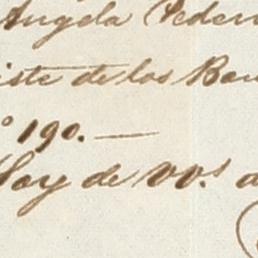 Angela Feder
iste de los Ban
º 190. —
Soy de VV.s a